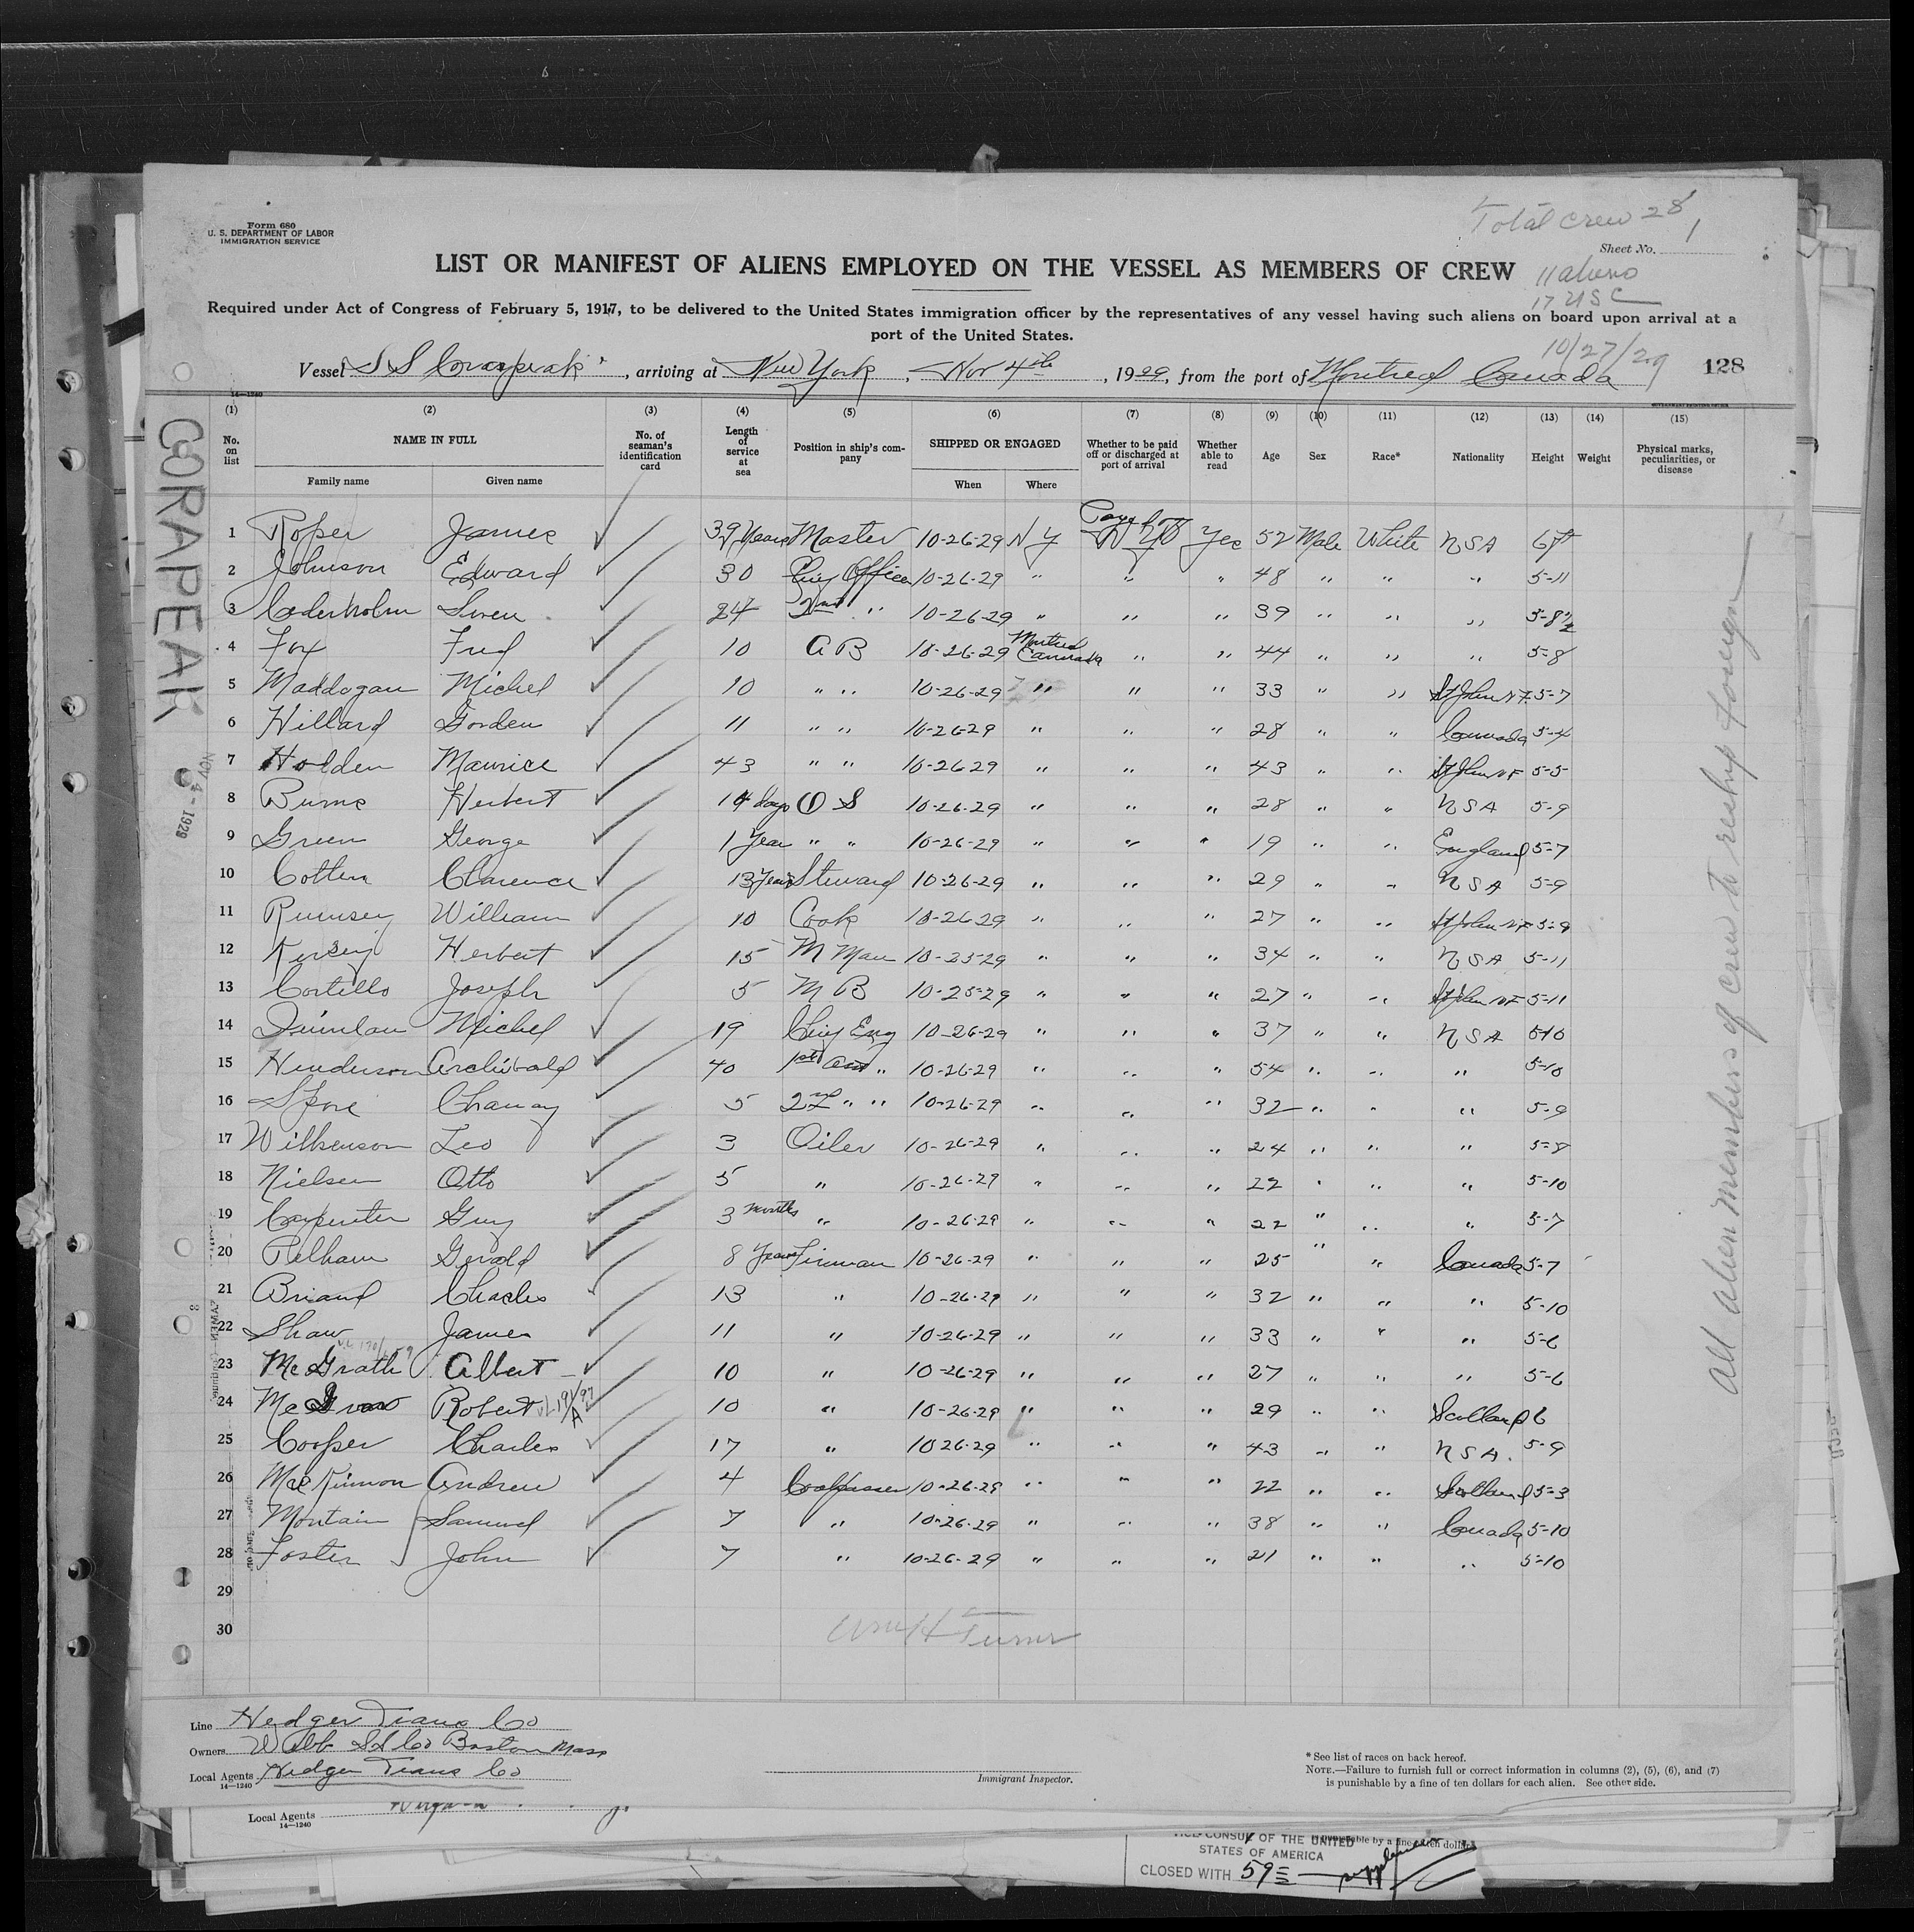 Form 680
U. S. DEPARTMENT OF LABOR
IMMIGRATION SERVICE
Total crew 28
Sheet No. 1
LIST OR MANIFEST OF ALIENS EMPLOYED ON THE VESSEL AS MEMBERS OF CREW
11 aliens
17 USC
Required under Act of Congress of February 5, 1917, to be delivered to the United States immigration officer by the representatives of any vessel having such aliens on board upon arrival at a
port of the United States.
10/27/29
Vessel S S Corapeak, arriving at New York, Nov 4th, 1929, from the port of Montreal Canada 128
14—1240
(1) (2) (3) (4) (5) (6) (7) (8) (9) (10) (11) (12) (13) (14) (15)
No. on list NAME IN FULL No. of seaman's identification card Length of service at sea Position in ship's company SHIPPED OR ENGAGED Whether to be paid off or discharged at port of arrival Whether able to read Age Sex Race* Nationality Height Weight Physical marks, peculiarities, or disease
Family name Given name When Where
1 Roper James 39 Years Master 10-26-29 N Y Yes 52 Male White USA 6ft
2 Johnson Edward 30 Chief Officer 10-26-29 " " " 48 " " " 5-11
3 Cederholm Swen 24 2nd " 10-26-29 " " " 39 " " " 5-8½
4 Fox Fred 10 A B 10-26-29 Montreal Canada " " 44 " " " 5-8
5 Maddogan Michel 10 " " 10-26-29 " " " 33 " " St John N F 5-7
6 Hillard Gorden 11 " " 10-26-29 " " " 28 " " Canada 5-4
7 Holden Maurice 43 " " 10-26-29 " " " 43 " " St John N F 5-5
8 Burns Herbert 14 days O S 10-26-29 " " " 28 " " USA 5-9
9 Green George 1 Year " " 10-26-29 " " " 19 " " England 5-7
10 Cotten Clarence 13 Years Steward 10-26-29 " " " 29 " " USA 5-9
11 Rumsey William 10 Cook 10-26-29 " " " 27 " " St John N F 5-9
12 Kersey Herbert 15 M Man 10-25-29 " " " 34 " " USA 5-11
13 Costello Joseph 5 M B 10-25-29 " " " 27 " " St John N F 5-11
14 Quinlan Michel 19 Chief Eng 10-26-29 " " " 37 " " USA 5-10
15 Henderson Archibald 40 1st Asst " 10-26-29 " " " 54 " " " 5-10
16 Spore 5 2nd " " 10-26-29 " " " 32 " " " 5-9
17 Wilkenson Leo 3 Oiler 10-26-29 " " " 24 " " " 5-8
18 Nielsen Otto 5 " 10-26-29 " " " 22 " " " 5-10
19 Carpenter Guy 3 months " 10-26-29 " " " 22 " " " 5-7
20 Pelham Gerald 8 Years Fireman 10-26-29 " " " 25 " " Canada 5-7
21 Briand Charles 13 " 10-26-29 " " " 32 " " " 5-10
22 Shaw James 11 " 10-26-29 " " " 33 " " " 5-6
23 McGrath Albert 10 " 10-26-29 " " " 27 " " " 5-6
24 Robert 10 " 10-26-29 " " " 29 " " Scotland 6
25 Cooper Charles 17 " 10 26-29 " " " 43 " " USA. 5-9
26 MacKinnon Andrew 4 Coalpasser 10-26-29 " " " 22 " " Scotland 5-3
27 Montain Samuel 7 " 10-26-29 " " " 38 " " Canada 5-10
28 Foster John 7 " 10-26-29 " " " 21 " " " 5-10
29
30
Wm H Turner
CORAPEAK
NOV 4 - 1929
All alien members of crew to reship foreign
Line Hedger Trans Co
Owners Webb SS Co Boston Mass
Local Agents Hedger Trans Co
14—1240
Immigrant Inspector.
* See list of races on back hereof.
NOTE.—Failure to furnish full or correct information in columns (2), (5), (6), and (7)
is punishable by a fine of ten dollars for each alien. See other side.
Local Agents
14—1240
VICE CONSUL OF THE UNITED
STATES OF AMERICA
CLOSED WITH 59